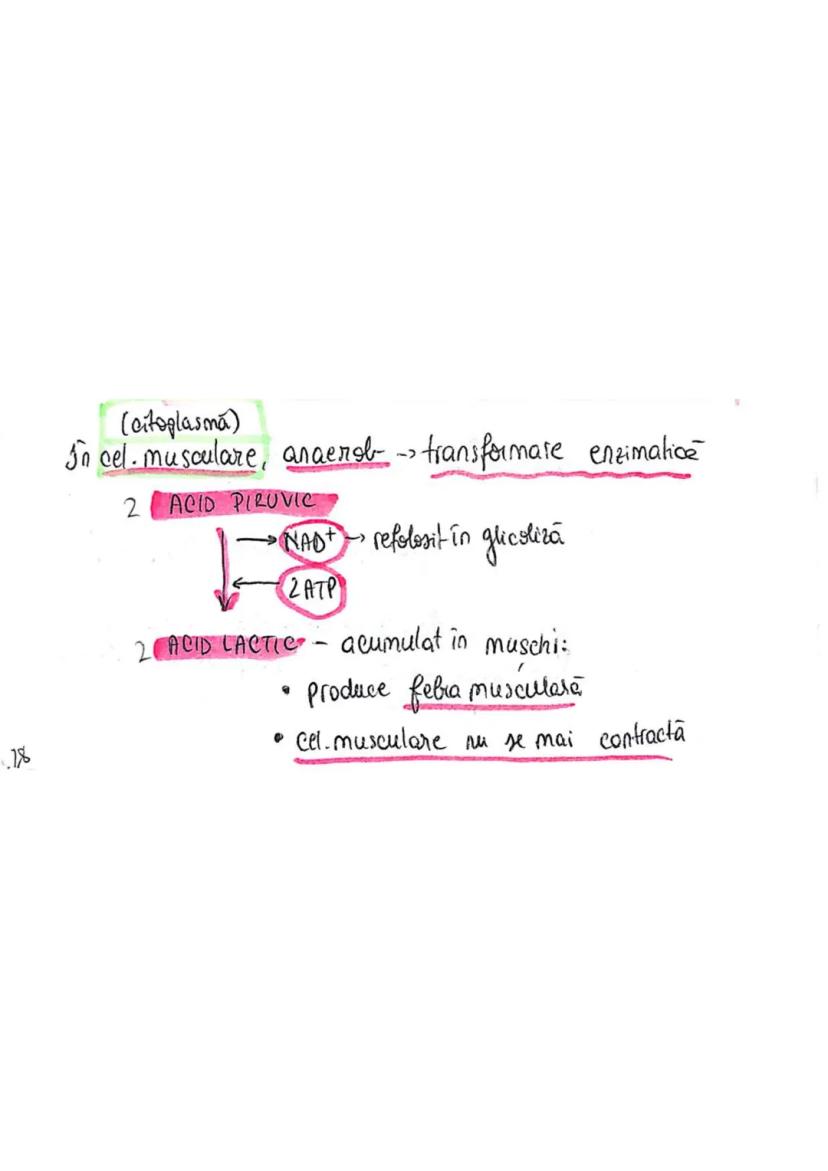 (citoplasmă)
În cel. musculare, anaerob -> transformare enzimatică
2 ACID PIRUVIC
→ NAD+ → refolosit în glicoliză
← 2ATP
2 ACID LACTIC - acumulat în mușchi:
• produce febra musculară
• cel. musculare nu se mai contractă
.78